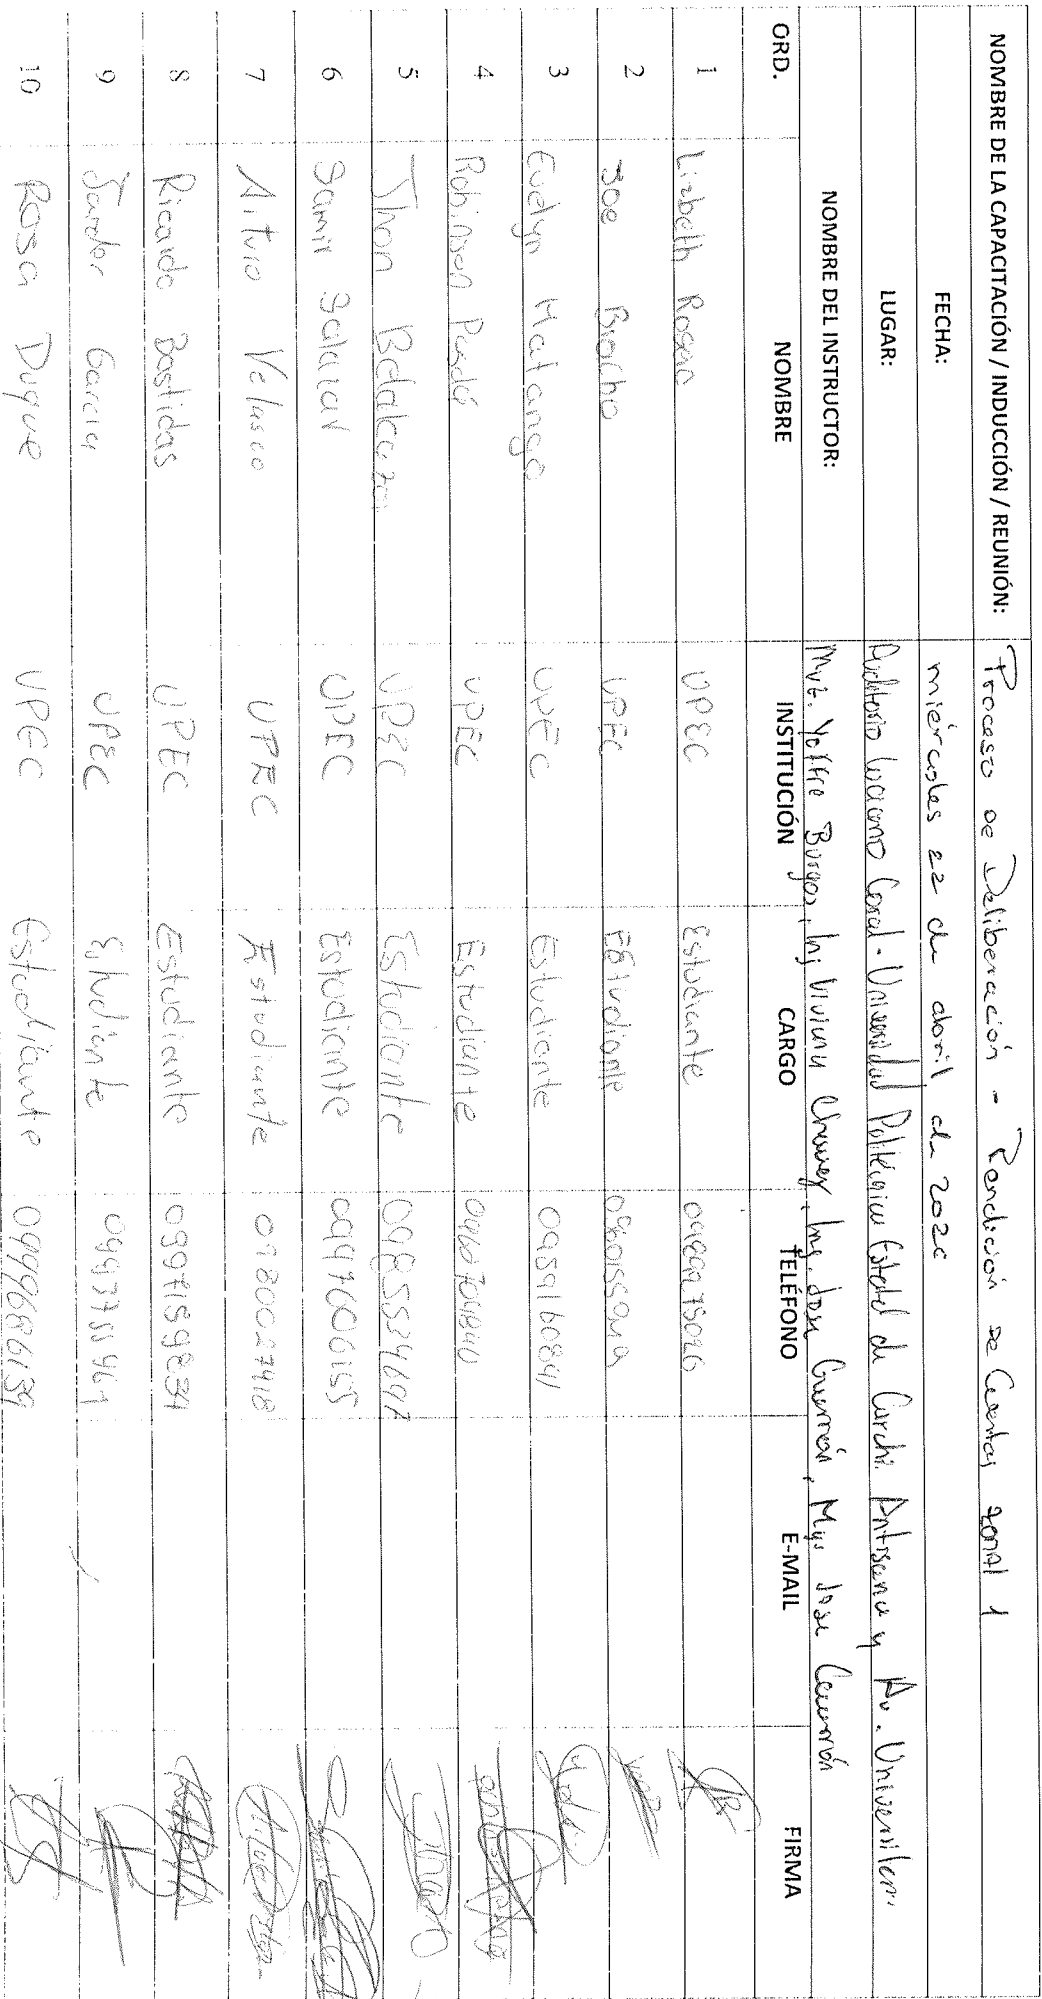 NOMBRE DE LA CAPACITACIÓN / INDUCCIÓN / REUNIÓN: Proceso de Deliberación - Rendición de Cuentas zonal 1
FECHA: miércoles 22 de abril de 202
LUGAR: Auditorio Luciano Coral - Universidad Politécnica Estatal de Carchi. Antisana y Av. Universitaria
NOMBRE DEL INSTRUCTOR: Burgos, Ing Viviana Chavez, Ing. José Guerrón, Mgs José
ORD. NOMBRE INSTITUCIÓN CARGO TELÉFONO E-MAIL FIRMA
1 Lizbeth UPEC Estudiante
2 Joe UPEC Estudiante
3 Evelyn Matango UPEC Estudiante 0959160841
4 Robinson UPEC Estudiante
5 Jhon UPEC Estudiante 0985524697
6 Samir Salazar UPEC Estudiante 0997606155
7 Arturo Velasco UPEC Estudiante 0980027418
8 Ricardo Bastidas UPEC Estudiante 0997159834
9 Sander Garcia UPEC Estudiante
10 Rosa Duque UPEC Estudiante 0999686139